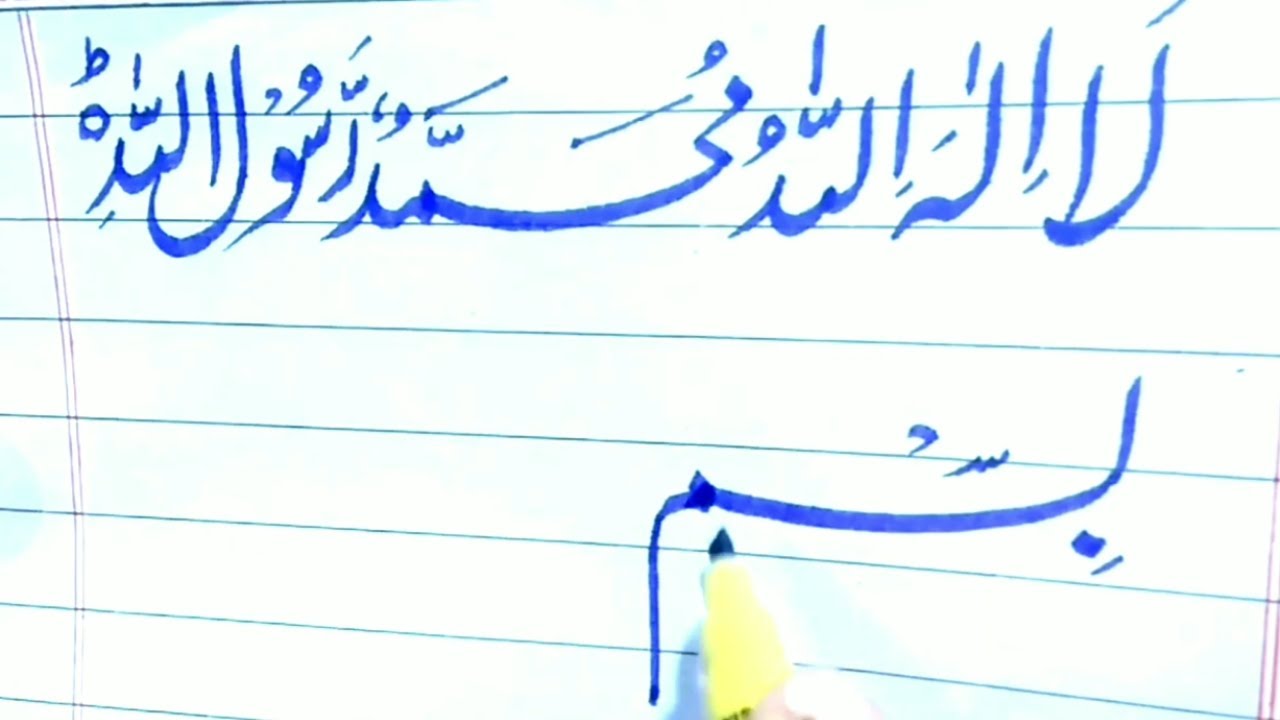 لَا اِلٰهَ اِلَّا اللّٰهُ مُحَمَّدٌ رَّسُوْلُ اللّٰهِؕ
بِسْم